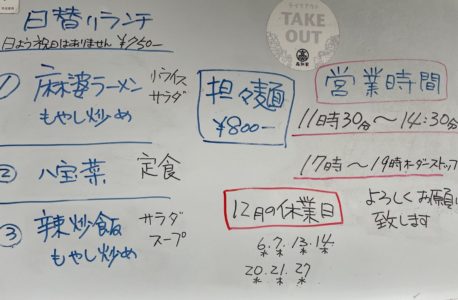 日替りランチ
日よう祝日はありません ¥750-
① 麻婆ラーメン 小ライス
もやし炒め サラダ
② 八宝菜 定食
③ 辣炒飯 サラダ
もやし炒め スープ
テイクアウト
TAKE
OUT
担々麺
¥800-
営業時間
11時30分〜14:30分
17時〜19時オーダーストップ
12月の休業日
6.7.13.14
水 木 水 木
20.21.27
水 木 水
よろしくお願い
致します